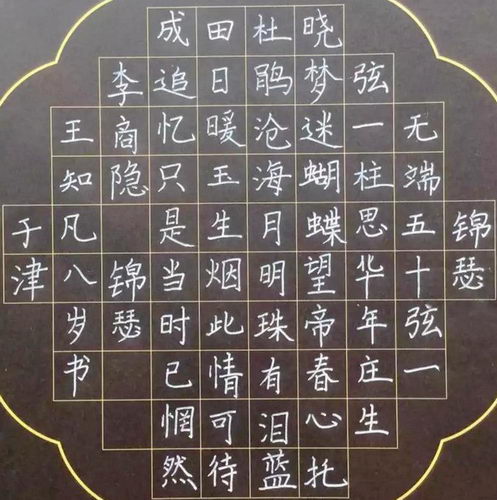 锦瑟
无端五十弦一
弦一柱思华年庄生
晓梦迷蝴蝶望帝春心托
杜鹃沧海月明珠有泪蓝
田日暖玉生烟此情可待
成追忆只是当时已惘然
李商隐 锦瑟
王知凡八岁书
于津